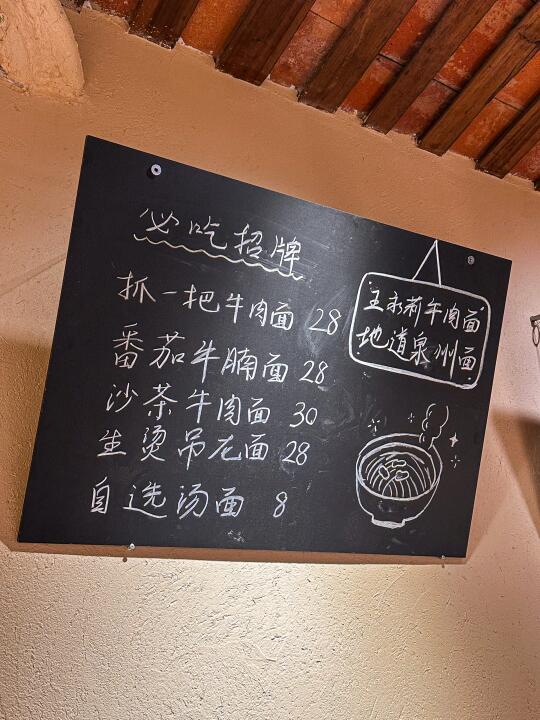 必吃招牌
抓一把牛肉面 28
番茄牛腩面 28
沙茶牛肉面 30
生烫吊龙面 28
自选汤面 8
王永莿牛肉面
地道泉州面